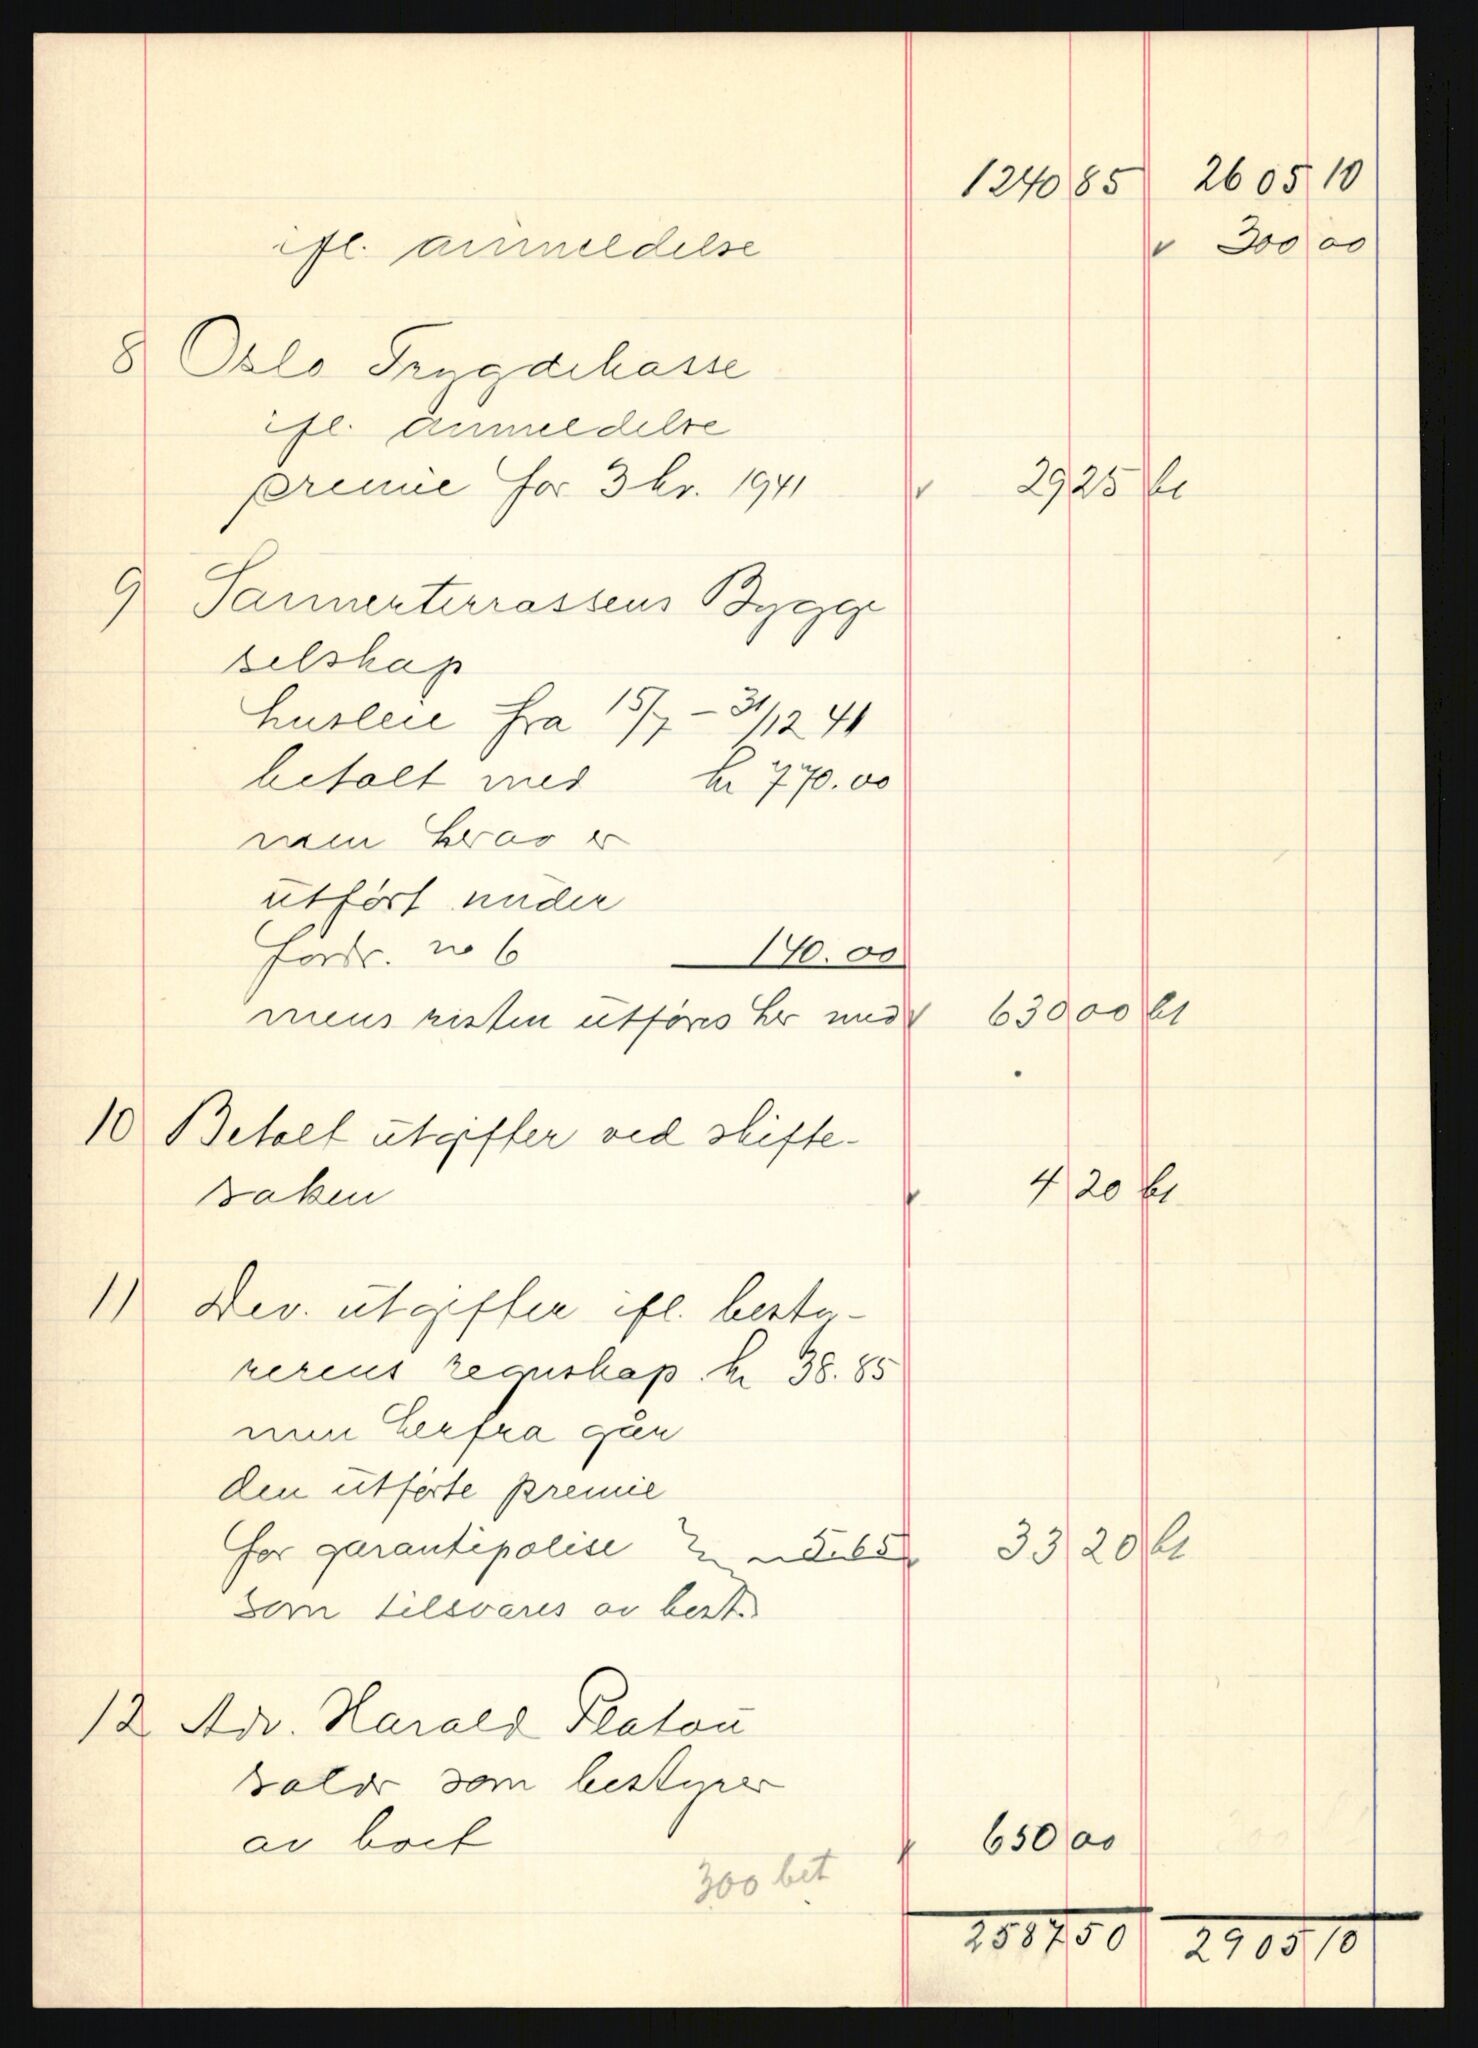 1240 85 2605 10
ifl. anmeldelse v 300 00
8 Oslo Trygdekasse
ifl. anmeldelse
premie for 3 kv. 1941 v 29 25 bt
9 Sannerterrassens Bygge
selskap
husleie fra 15/7 – 31/12 41
betalt med kr 770.00
men herav er
utført under
fordr. no 6 140.00
mens resten utføres her med v 630 00 bt
10 Betalt utgifter ved skifte-
saken v 4 20 bt
11 Div. utgifter ifl. besty-
rerens regnskap kr 38.85
men herfra går
den utførte premie
for garantipolise 5.65 v 33 20 bt
som tilsvares av best.
12 Adv. Harald Platou
salær som bestyrer
av boet v 650 00
300 bet
2587 50 2905 10